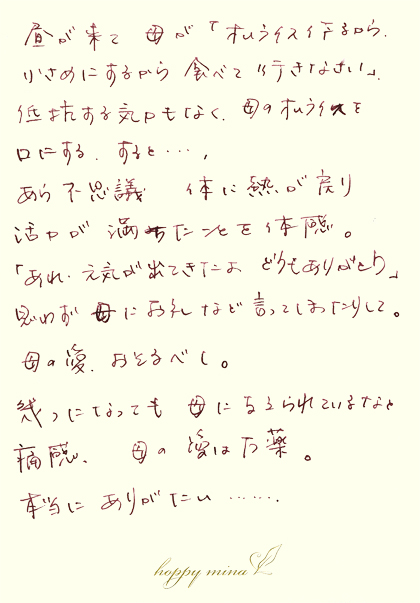 昼が来て 母が「オムライス作るから、
小さめにするから 食べて行きなさい」。
抵抗する気力もなく、母のオムライスを
口にする。すると…、
あら不思議 体に熱が戻り
活力が満ちたことを体感。
「あれ、元気が出てきたよ どうもありがとう」
思わず母にお礼など言ってしまったりして。
母の愛、おそるべし。
幾つになっても 母に支えられているなと
痛感、 母の愛は万薬。
本当に ありがたい ……
hoppy mina